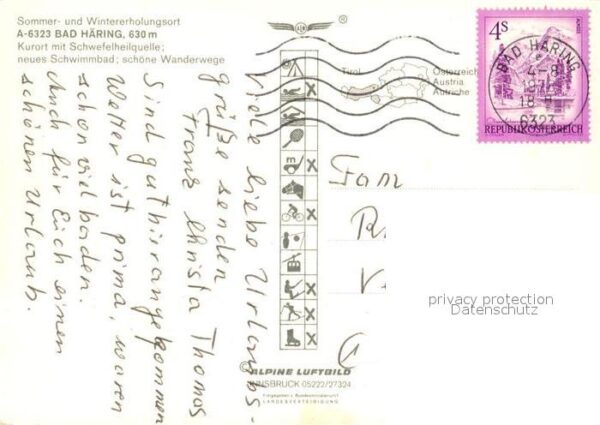 Sommer- und Wintererholungsort
A-6323 BAD HÄRING, 630 m
Kurort mit Schwefelheilquelle;
neues Schwimmbad; schöne Wanderwege
Viele liebe Urlaubs-
grüße senden
Franz Christa Thomas
Sind gut hierangekommen
Wetter ist prima, waren
schon viel baden.
Auch für Euch einen
schönen Urlaub.
Tirol
Österreich
Austria
Autriche
4S
REPUBLIK ÖSTERREICH
BAD HÄRING
6323
Fam
R
V
privacy protection
Datenschutz
© ALPINE LUFTBILD
INNSBRUCK 05222/27324
Freigegeben v. Bundesministerium f.
LANDESVERTEIDIGUNG